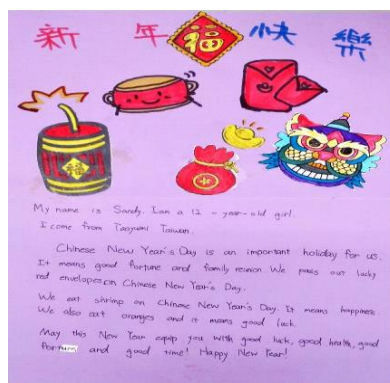 新 年 福 快 樂
福
My name is Sandy. I am a 12 - year-old girl.
I come from Taoyuan Taiwan.
Chinese New Year's Day is an important holiday for us.
It means good fortune and family reunion. We pass out lucky
red envelopes on Chinese New Year's Day.
We eat shrimp on Chinese New Year's Day. It means happiness.
We also eat oranges and it means good luck.
May this New Year equip you with good luck, good health, good
fortune and good time! Happy New Year!